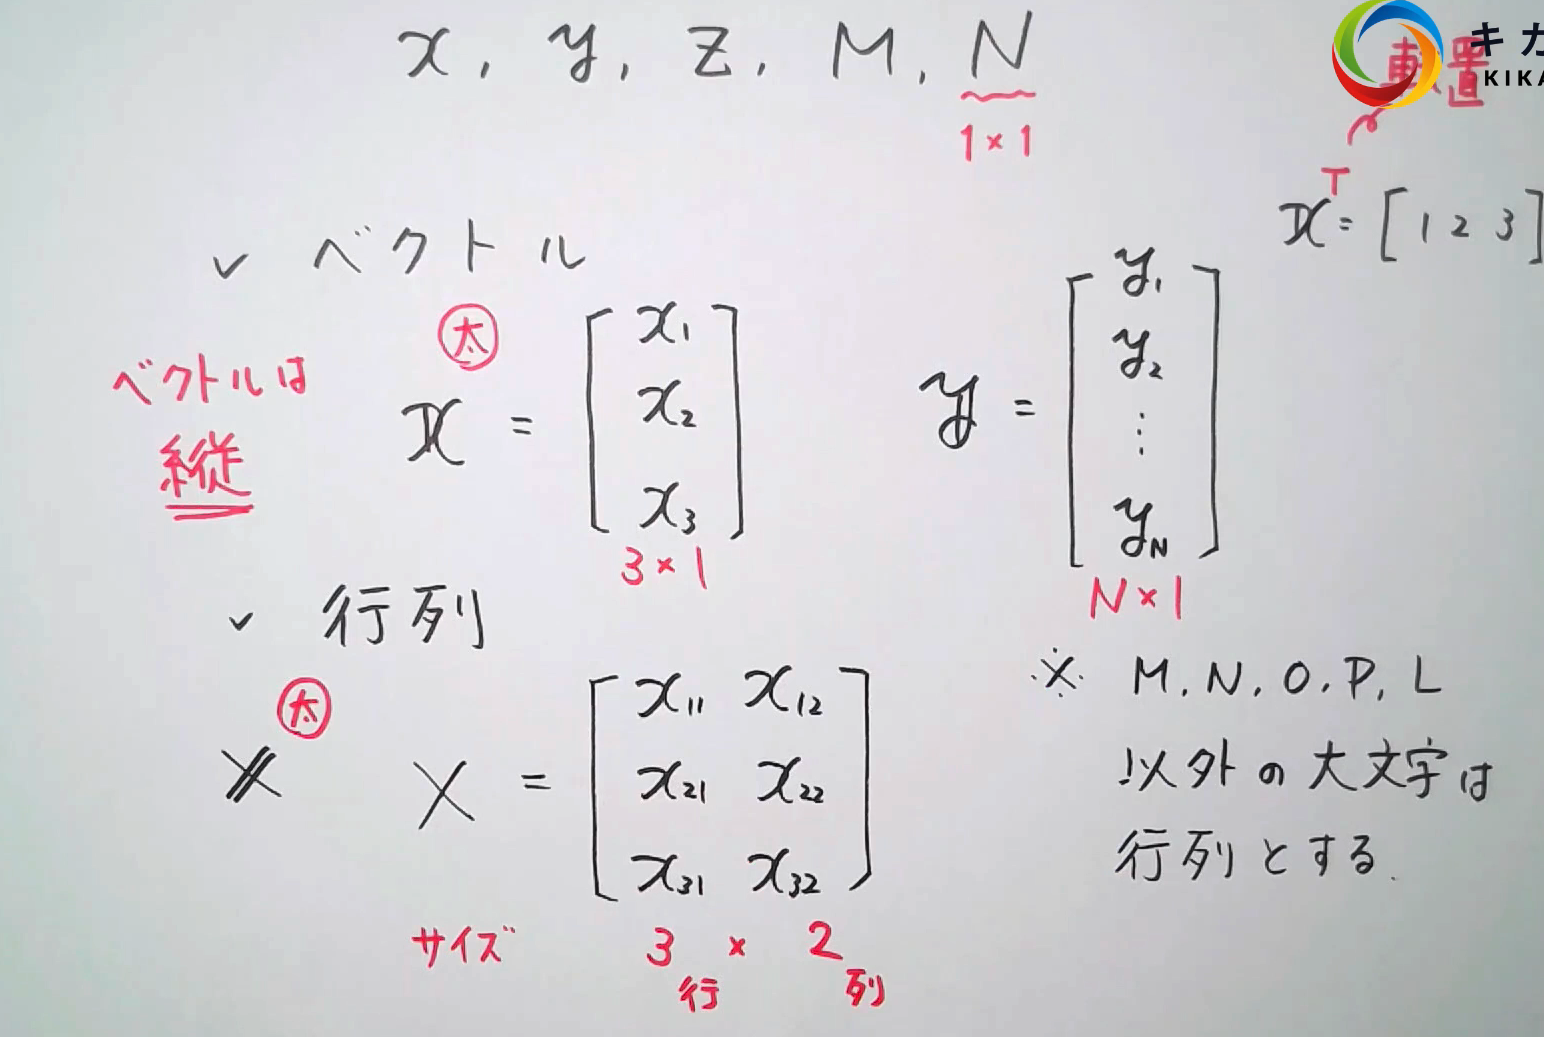 x, y, z, M, N
1×1
キカ
KIKA
転置
x^T = [1 2 3]
✓ ベクトル
ベクトルは
縦
太
x = [x₁ x₂ x₃]
3×1
y = [y₁ y₂ ⋮ y_N]
N×1
✓ 行列
太
X X = [x₁₁ x₁₂
x₂₁ x₂₂
x₃₁ x₃₂]
サイズ 3行 × 2列
※ M, N, O, P, L
以外の大文字は
行列とする.